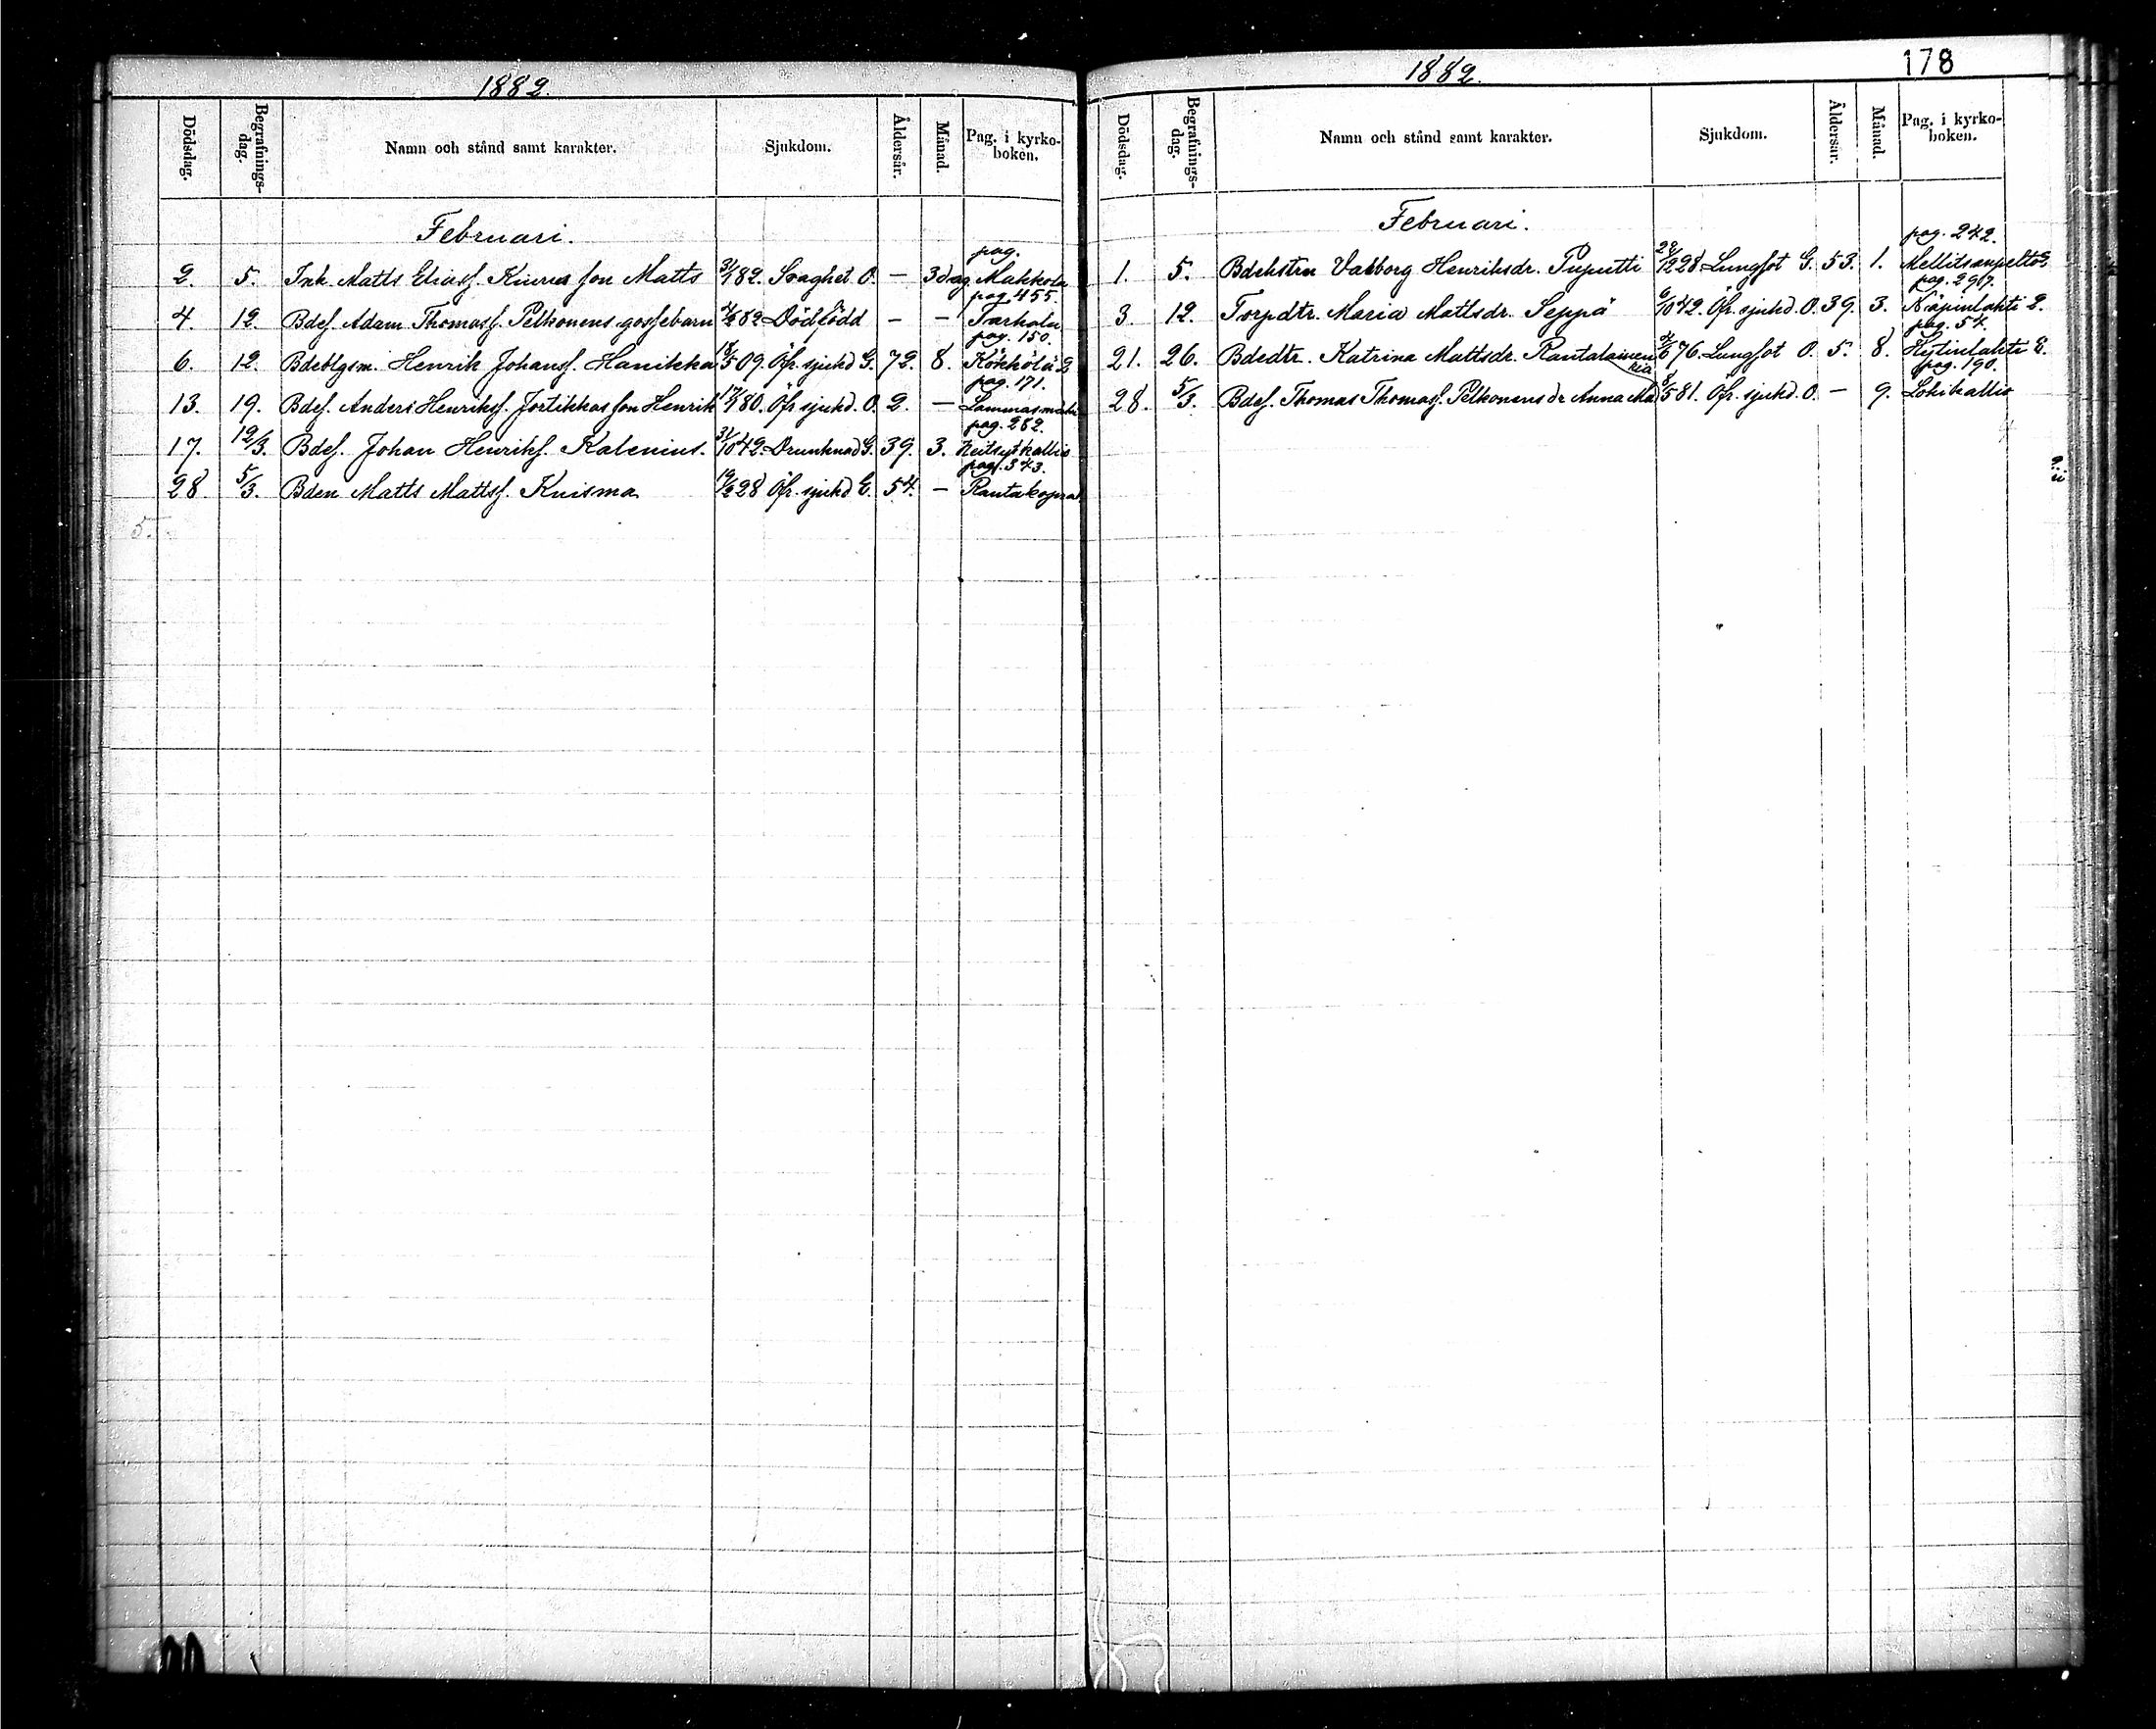 1882.
Dödsdag. Begrafnings-dag. Namn och stånd samt karakter. Sjukdom. Åldersår. Månad. Pag. i kyrko-boken.
Februari.
pag.
2. 5. Inh. Matts Eliasf. Kiurus son Matts 31/1 82. Svaghet O. — 3 dag Makkola
pag 455.
4. 12. Bdef. Adam Thomasf. Pelkonens gossebarn 4/2 82 Dödfödd — — Tarkala
pag. 150.
6. 12. Bdeblgsm. Henrik Johansf. Hanikka 18/5 09. Öfr. sjukd G. 72. 8. Kökkölä 2
pag. 171.
13. 19. Bdef. Anders Henriksf. Jortikkas son Henrik 17/1 80. Öfr sjukd. O. 2. — Lammasmäki
pag. 282.
17. 12/3. Bdef. Johan Henriksf. Kalenius. 31/10 42. Drunknad G. 39. 3. Neitsytkallio
pag. 343.
28 5/3. Bden Matts Mattsf. Kuisma 19/2 28 Öfr. sjukd E. 54. — Rantakoprala
5.
1882.
178
Dödsdag. Begrafnings-dag. Namn och stånd samt karakter. Sjukdom. Åldersår. Månad. Pag. i kyrko-boken.
Februari.
pag. 242.
1. 5. Bdehstrn Valborg Henriksdr. Puputti 28/12 28 Lungsot G. 53. 1. Mellitsanpelto
pag. 297.
3. 12. Torpdtr. Maria Mattsdr. Seppä 6/10 42. Öfr. sjukd. O. 39. 3. Käpinlahti 2.
pag. 54.
21. 26. Bdedtr. Katrina Mattsdr. Rantalainen 4/6 76. Lungsot O. 5. 8. Hytinlahti 2.
pag. 190.
ria
28. 5/3. Bdef. Thomas Thomasf. Pelkonens dr Anna Ma 8/5 81. Öfr. sjukd. O. — 9. Lohikallio